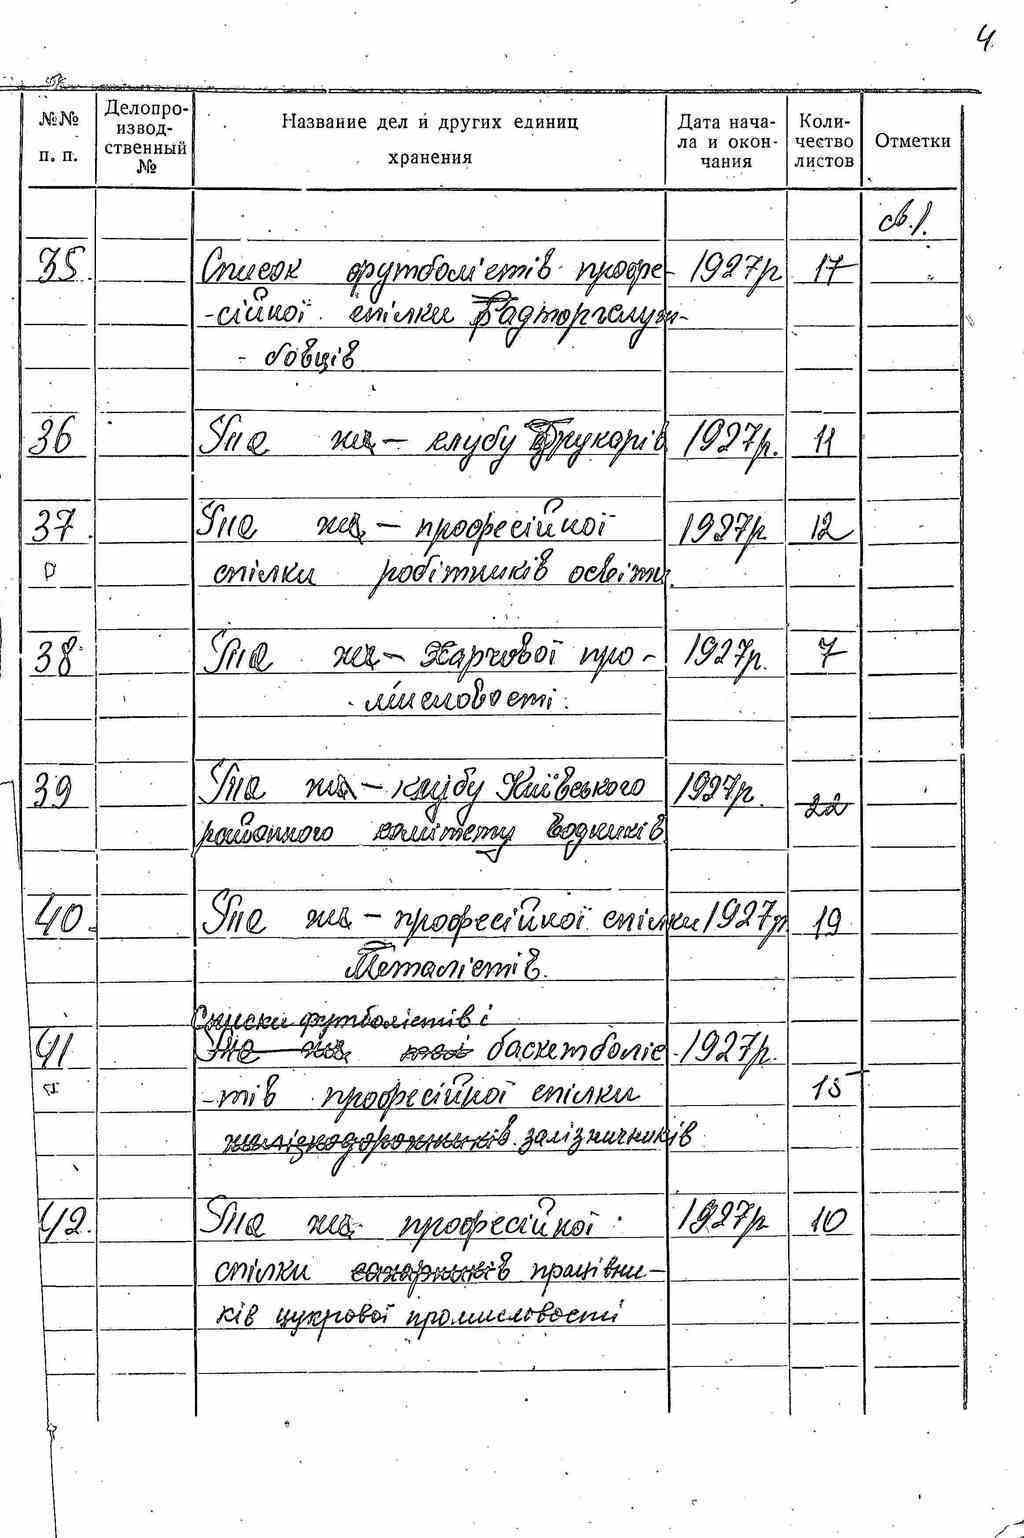 4.
№№ п. п.
Делопро-
извод-
ственный
№
Название дел и других единиц
хранения
Дата нача-
ла и окон-
чания
Коли-
чество
листов
Отметки
св. 1.
35. Список футболістів профе- 1927р 17
-сійної спілки Радторгслуж-
- бовців
36 Те же — клубу Друкарів 1927р. 11
37. Те же — професійної 1927р. 12
спілки робітників освіти.
38 Те же — Харчової про- 1927р. 7
мисловості.
39 Те же — клубу Київського 1927р. 22
районного комітету водників
40. Те же — професійної спілки 1927р. 19
Металістів.
Списки футболістів і
41 Те же баскетболіс- 1927р.
-тів професійної спілки 15
желізнодорожників залізничників
42. Те же професійної 1927р 10
спілки сахарників працівни-
ків цукрової промисловості